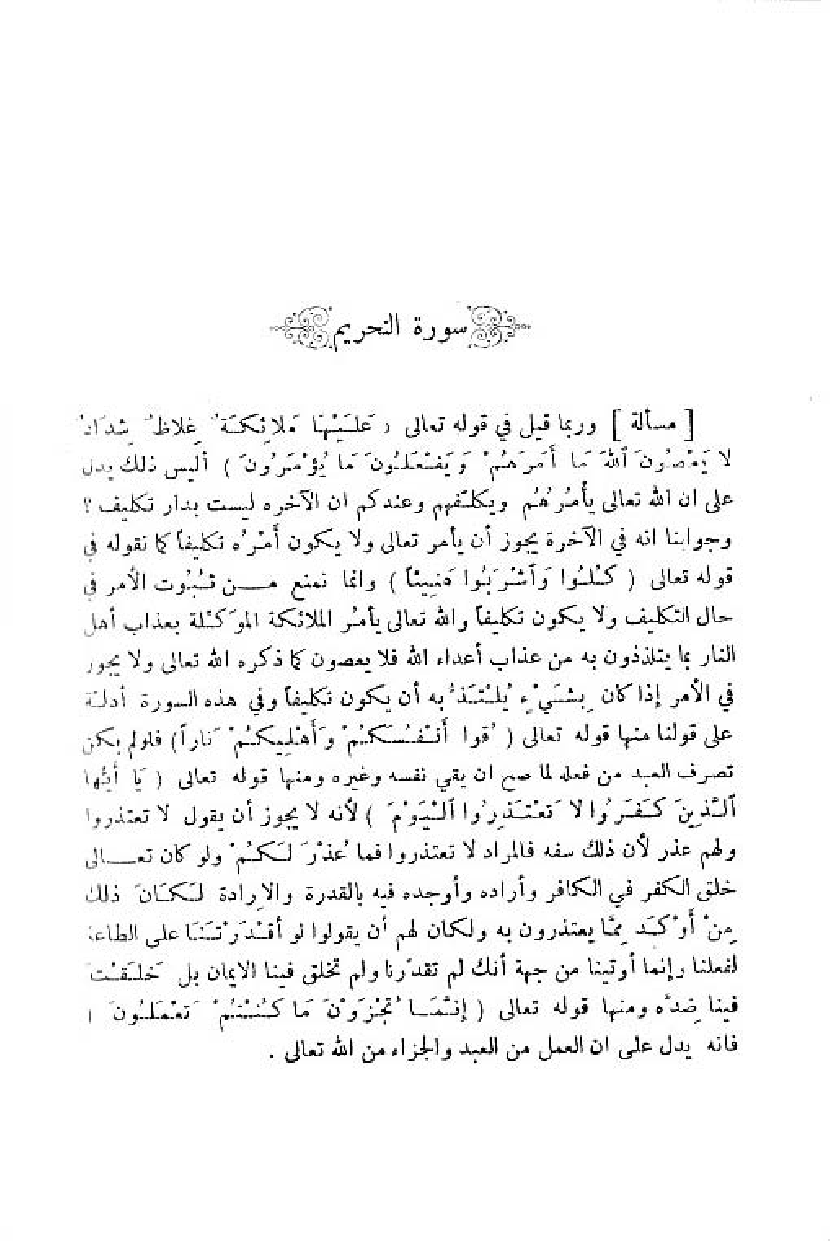 سورة التحريم
[ مسألة ] وربما قيل في قوله تعالى ( عَلَيْهَا مَلائِكَةٌ غِلاظٌ شِدَادٌ
لا يَعْصُونَ ٱللهَ مَا أَمَرَهُمْ وَيَفْعَلُونَ مَا يُؤْمَرُونَ ) أليس ذلك يدل
على ان الله تعالى يأمُرُهُم ويكلّفهم وعندكم ان الآخره ليست بدار تكليف ؟
وجوابنا انه في الآخرة يجوز أن يأمر تعالى ولا يكون أمْرُه تكليفاً كما نقوله في
قوله تعالى ( كُلُوا وَأَشْرَبُوا هَنِيئاً ) وانما نمنع من ثُبُوت الأمر في
حال التكليف ولا يكون تكليفاً والله تعالى يأمُر الملائكة الموَكَّلة بعذاب أهل
النار بما يتلذذون به من عذاب أعداء الله فلا يعصون كما ذكره الله تعالى ولا يجوز
في الأمر إذا كان بِشَيْءٍ يُلْتَذُّ به أن يكون تكليفاً وفي هذه السورة أدلّة
على قولنا منها قوله تعالى ( قُوا أَنْفُسَكُمْ وَأَهْلِيكُمْ نَاراً ) فلو لم يكن
تصرف العبد من فعله لما صح ان يقي نفسه وغيره ومنها قوله تعالى ( يَا أَيُّها
ٱلَّذِينَ كَفَرُوا لا تَعْتَذِرُوا ٱلْيَوْمَ ) لأنه لا يجوز أن يقول لا تعتذروا
ولهم عذر لأن ذلك سفه فالمراد لا تعتذروا فما عُذْرَ لَكُمْ ولو كان تعالى
خلق الكفر في الكافر وأراده وأوجده فيه بالقدرة والإرادة لَكَانَ ذلك
مِنْ أَوْكَد مِمَّا يعتذرون به ولكان لهم أن يقولوا لو أقْدَرْتَنَا على الطاعة
لفعلنا وإنما أوتينا من جهة أنك لم تقدّرنا ولم تخلق فينا الايمان بل خَلَقْتَ
فينا ضِدَّه ومنها قوله تعالى ( إِنَّمَا تُجْزَوْنَ مَا كُنْتُمْ تَعْمَلُونَ )
فانه يدل على ان العمل من العبد والجزاء من الله تعالى .